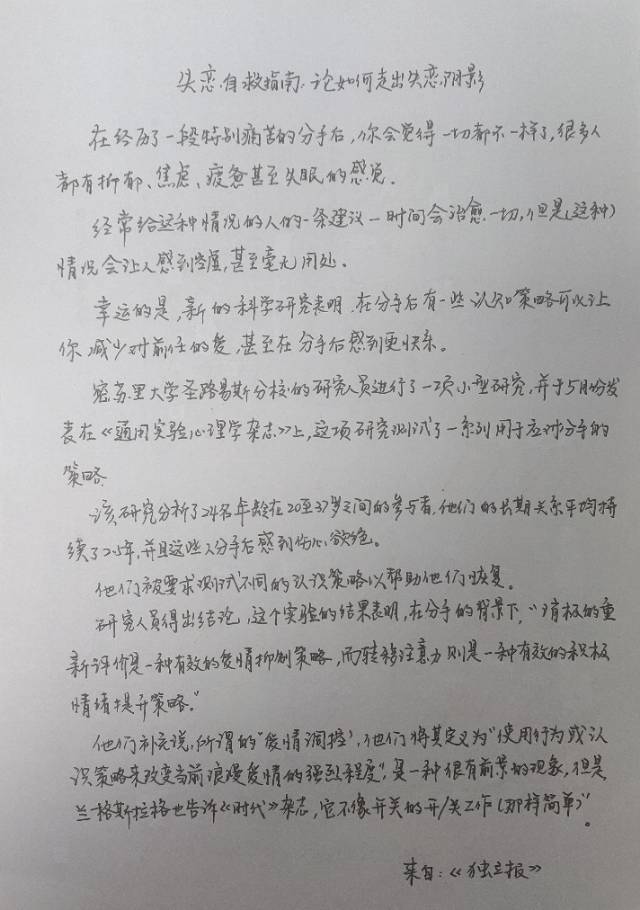 失恋自救指南:论如何走出失恋阴影
在经历了一段特别痛苦的分手后,你会觉得一切都不一样了,很多人
都有抑郁、焦虑、疲惫甚至失眠的感觉.
经常给这种情况的人的一条建议—时间会治愈一切,但是(这种)
情况会让人感到空虚,甚至毫无用处、
幸运的是,新的科学研究表明.在分手后有一些认知策略可以让
你减少对前任的爱,甚至在分手后感到更快乐。
密苏里大学圣路易斯分校的研究人员进行了一项小型研究,并于5月份发
表在《通用实验心理学杂志》上,这项研究测试了一系列用于应对分手的
策略
该研究分析了24名年龄在20至37岁之间的参与者,他们的长期关系平均持
续了2.5年,并且这些人分手后感到伤心欲绝。
他们被要求测试不同的认识策略以帮助他们恢复。
研究人员得出结论,这个实验的结果表明,在分手的背景下,“消极的重
新评价是一种有效的爱情抑制策略,而转移注意力则是一种有效的积极
情绪提升策略."
他们补充说,所谓的“爱情调控',他们将其定义为“使用行为或认
识策略来改变当前浪漫爱情的强烈程度",是一种很有前景的现象,但是
兰格斯拉格也告诉《时代》杂志,它不像开关的开/关工作(那样简单)"。
来自:《独立报》